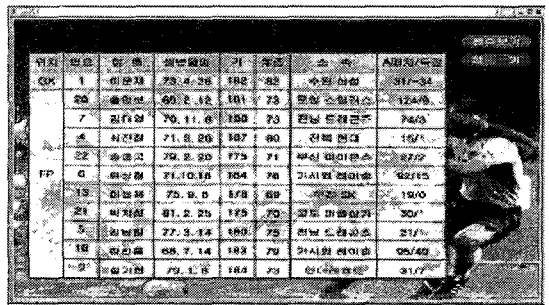 위치 번호 성 명 생년월일 키 소 속 A매치/득점
GK 1 이운재 73. 4. 26 182 82 수원 삼성 31/-34
20 홍명보 69. 2. 12 181 73 포항 스틸러스 124/9
7 김태영 70. 11. 8 180 73 전남 드래곤즈 74/3
4 최진철 71. 3. 26 187 80 전북 현대 15/
22 송종국 79. 2. 20 175 71 부산 아이콘스 27/2
FP 6 유상철 71.10.18 184 78 가시와 레이솔 92/15
13 이을용 75. 9. 8 69 부천 SK 19/0
21 박지성 81. 2. 25 175 70 교토 퍼플상가 30/
5 김남일 77. 3. 14 180 75 전남 드래곤즈 21/
18 황선홍 68. 7. 14 183 79 가시와 레이솔 95/49
9 설기현 79. 1. 8 184 73 안더레흐트 31/7